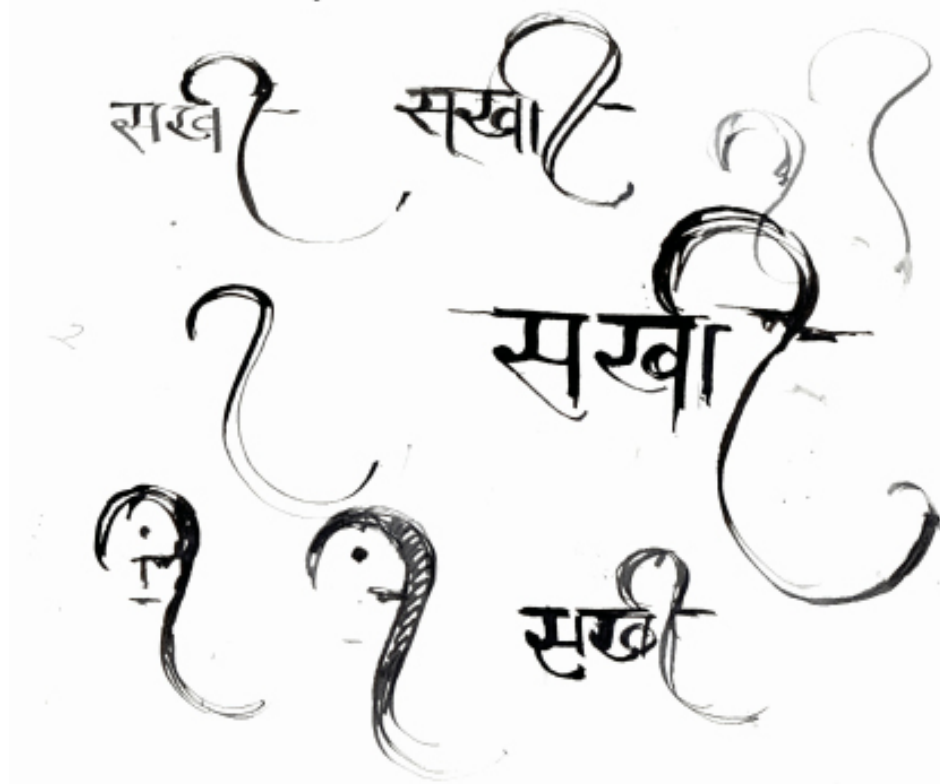 सखी
सखी
सखी
सखी